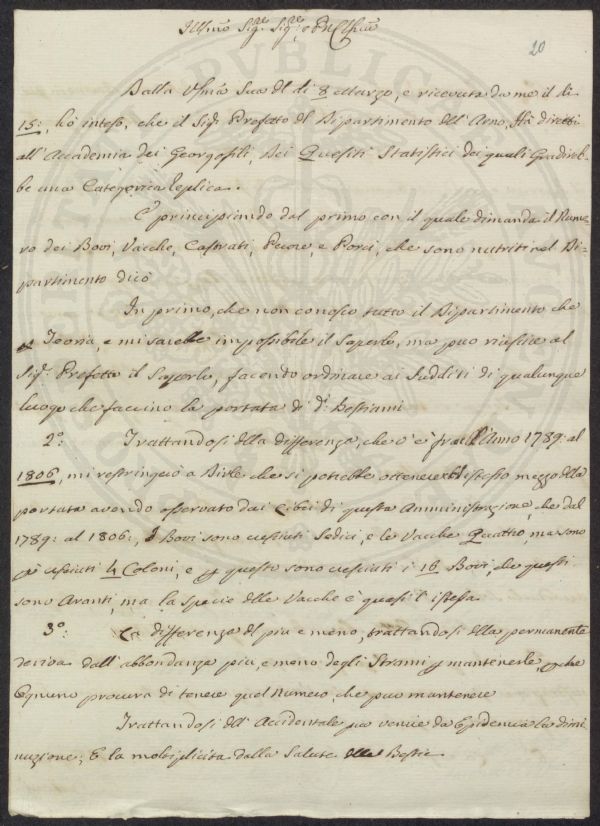 Illmo Sigre Sigre e Pne Clmo
20
Dalla Vsmā Sua del di 8 Marzo, e ricevuta da me il di
15:, hò inteso, che il Sigr Prefetto del Dipartimento dell'Arno, Hà diretti
all'Accademia dei Georgofili, Dei Quesiti Statistici dei quali Gradireb-
be una Categorica Replica.
E principiando dal primo con il quale dimanda il Nume-
ro dei Bovi, Vacche, Castrati, Pecore, e Porci, che sono nutriti nel Di-
partimento dico
In primo, che non conosco tutto il Dipartimento che
Teoria, e mi sarebbe impossibile il Saperlo, ma puo riescire al
Sigr Prefetto il Saperlo, facendo ordinare ai Sudditi di qualunque
luogo che faccino la portata di di Bestiami
2o: Trattandosi della differenza, che v'è fra l'Anno 1789: al
1806, mi restringerò a Dirle che si potrebbe ottenere coll'istesso mezzo della
portata avendo osservato dai Libri di questa Amministrazione, che dal
1789: al 1806:, I Bovi sono cresciuti Sedici, e le Vacche Quattro, ma sono
cresciuti 4 Coloni, e p questo sono cresciuti i 16 Bovi, che questi
sono Aranti, ma la specie delle Vacche è quasi l'istessa.
3o: La differenza del piu e meno, trattandosi della permanente
deriva dall'abbondanza piu, e meno degli Strami p mantenerle, perche
Ognuno procura di tenere quel Numero, che puo mantenere
Trattandosi dell'Accidentale puo venire da Epidemia la dimi
nuzione; E la moltiplicità dalla Salute delle Bestie.